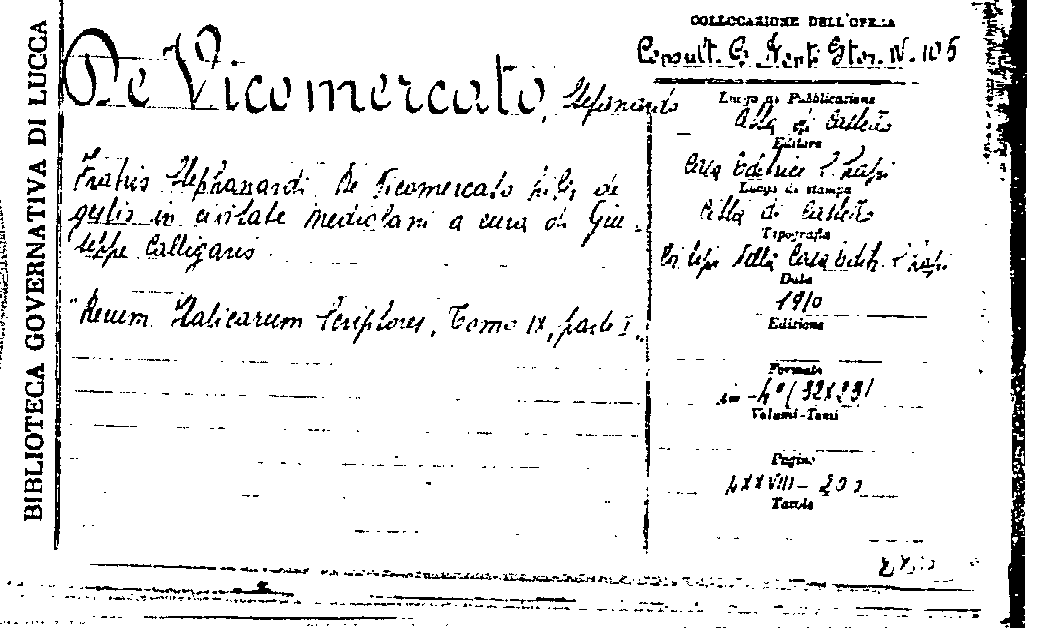 BIBLIOTECA GOVERNATIVA DI LUCCA
De Vicomercato, Stefanardo
Fratris Stephanardi De Vicomercato liber de
gestis in civitate mediolani a cura di Giu-
seppe Calligaris
"Rerum Italicarum Scriptores, Tomo IX, parte I.
COLLOCAZIONE DELL'OPERA
Consult. C. Stor. N. 105
Luogo di Pubblicazione
Città di Castello
Editore
Casa Editrice S. Lapi
Luogo di stampa
Città di Castello
Tipografia
Coi tipi della Casa Edit. S. Lapi
Data
1910
Edizione
Formato
in-4° (32X23)
Volumi-Tomi
Pagine
Tavole